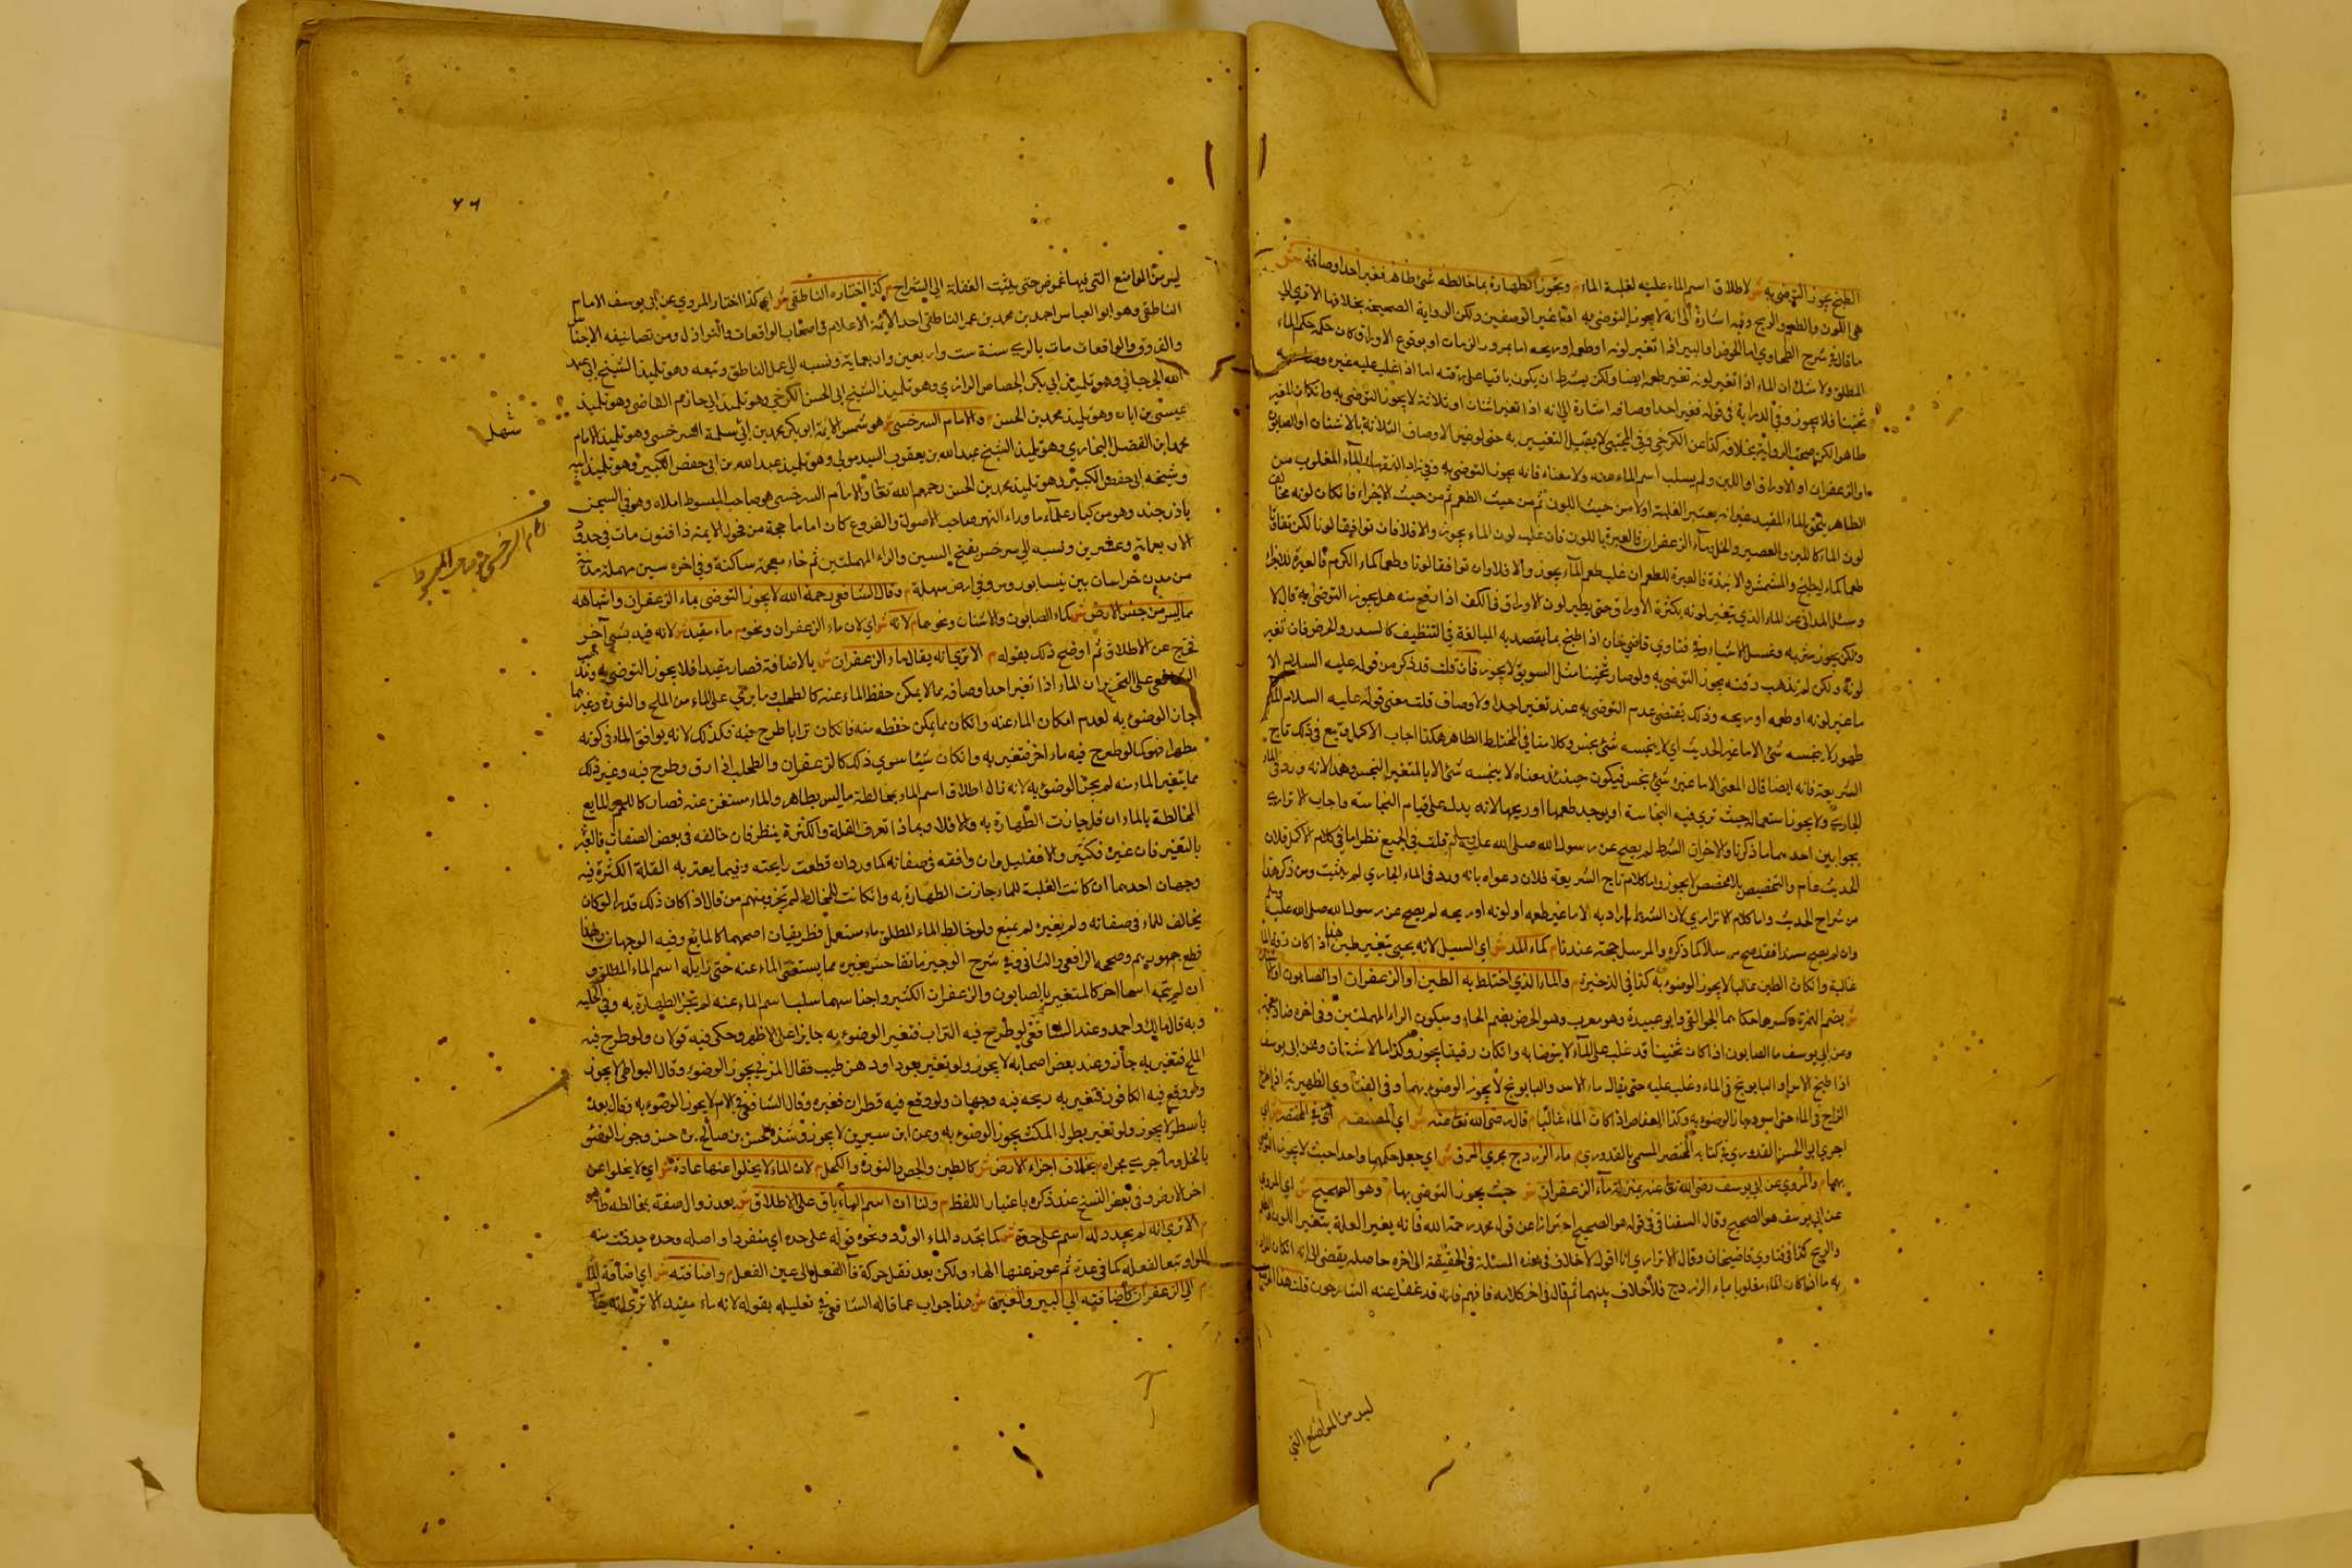 الطبخ يجوز التوضي به ش لاطلاق اسم الماء عليه لغلبة الماء م وتجوز الطهارة بما خالطه شئ طاهر فغير احد اوصافه ش
هي اللون والطعم والريح وفيه اشارة الى انه لا يجوز التوضي به اذا غير الوصفين ولكن الرواية الصحيحة بخلافها الا ترى الى
ما قال في شرح الطحاوي اما الحوض او البير اذا تغير لونه او طعمه او ريحه اما بمرور الزمان او بوقوع الاوراق كان حكمه حكم الماء
المطلق ولا شك ان الماء اذا تغير لونه تغير طعمه ايضا ولكن يشترط ان يكون باقيا على رقته اما اذا غلب عليه غيره وصار به
ثخينا فلا يجوز وفي الدراية في قوله فغير احد اوصافه اشارة الى انه اذا تغير اثنان او ثلاثة لا يجوز التوضي به وان كان المغير
طاهرا لكن صحت الرواية بخلافه كذا عن الكرخي وفي المجتبى لا يعتبر التغيير به حتى لو غير الاوصاف الثلاثة بالاشنان او الصابون
او الزعفران او الاوراق او اللبن ولم يسلب اسم الماء عنه ولا معناه فانه يجوز التوضي به وفي زاد الفقهاء الماء المغلوب من
الطاهر يلحق بالماء المقيد غير انه يعتبر الغلبة اولا من حيث اللون ثم من حيث الطعم ثم من حيث الاجزاء فان كان لونه مخالف
لون الماء كاللبن والعصير والخل وماء الزعفران فالعبرة باللون فان غلب لون الماء يجوز والا فلا فان توافقا لونا لكن تفاوتا
طعما كماء البطيخ والمشمش والانبذة فالعبرة للطعم ان غلب طعم الماء يجوز والا فلا وان توافقا لونا وطعما كماء الكرم فالعبرة للاجزاء
وسئل الميداني عن الماء الذي يتغير لونه بكثرة الاوراق حتى يظهر لون الاوراق في الكف اذا رفع منه هل يجوز التوضي به قال لا
ولكن يجوز شربه وغسل الاشياء به وفي فتاوي قاضي خان اذا طبخ بما يقصد به المبالغة في التنظيف كالسدر والحرض فان تغير
لونه ولكن لم تذهب رقته يجوز التوضي به ولو صار ثخينا مثل السويق لا يجوز فان قلت قد ذكر من قوله عليه السلام الا
ما غير لونه او طعمه او ريحه وذلك يقتضي عدم التوضي به عند تغير احد الاوصاف قلت معنى قوله عليه السلام الماء
طهور لا ينجسه شئ الا ما غير الحديث اي لا ينجسه شئ نجس وكلامنا في المختلط الطاهر هكذا اجاب الاكمل وتبع في ذلك تاج
الشريعة فانه ايضا قال المعنى الا ما غيره شئ نجس فيكون حينئذ معناه لا ينجسه شئ الا بالمتغير النجس وهذا لانه ورد في الماء
الجاري ولا يجوز استعماله حيث ترى فيه النجاسة او يوجد طعمها او ريحها لانه يدل على قيام النجاسة واجاب الاترازي
بجوابين احدهما ما ذكرنا والاخر ان الشرط لم يصح عن رسول الله صلى الله عليه وسلم قلت في الجميع نظر اما في كلام الاكمل فلان
الحديث عام والتخصيص بلا مخصص لا يجوز واما كلام تاج الشريعة فلان دعواه بانه ورد في الماء الجاري لم يثبت ومن ذكر هذا
من شراح الحديث واما كلام الاترازي لان الشرط اراد به الا ما غير طعمه او لونه او ريحه لم يصح عن رسول الله صلى الله عليه وسلم
وان لم يصح مسندا فقد صح مرسلا كما ذكره والمرسل حجة عندنا م كماء المد ش اي السيل لانه يجيئ بتغير طين هذا اذا كان رقة الماء
غالبة وان كان الطين غالبا لا يجوز الوضوء به كذا في الذخيرة م والماء الذي اختلط به الطين او الزعفران او الصابون او الاشنان
ش بضم الهمزة وكسرها حكاهما الجواليقي وابو عبيدة وهو معرب وهو الحرض بضم الحاء وسكون الراء المهملتين وفي اخره ضاد معجمة
وعن ابي يوسف ماء الصابون اذا كان ثخينا قد غلب على الماء لا يتوضا به وان كان رقيقا يجوز وكذا ماء الاشنان وعن ابي يوسف
اذا طبخ الاس او البابونج في الماء وغلب عليه حتى يقال ماء الاس والبابونج لا يجوز الوضوء بهما وفي الفتاوي الظهيرية اذا طرح
الزاج في الماء حتى اسود جاز الوضوء به وكذا العفاص اذا كان الماء غالبا م قال رضي الله تعالى عنه ش اي المصنف م اجرى في المختصر ش اي
اجرى ابو الحسن القدوري في كتابه المختصر المسمى بالقدوري م ماء الزردج مجرى المرق ش اي جعل حكمهما واحدا حيث لا يجوز التوضي
بهما م والمروي عن ابي يوسف رضي الله تعالى عنه بمنزلة ماء الزعفران ش حيث يجوز التوضي بها م وهو الصحيح ش اي المروي
عن ابي يوسف هو الصحيح وقال السغناقي في قوله هو الصحيح احترازا عن قول محمد رحمه الله فانه يغير العلة بتغير اللون والطعم
والريح كذا في فتاوي قاضيخان وقال الاترازي انا اقول لا خلاف في هذه المسئلة في الحقيقة الى اخره حاصله يقضي الى انه ان كان المراد
به ما اذا كان الماء مغلوبا بماء الزردج فلا خلاف بينهما ثم قال في اخر كلامه فافهم فانه قد غفل عنه الشارحون قلت هذا الموضع
ليس من المواضع التي
٧٦
ليس من المواضع التي فيها غموض حتى ينبت الغفلة الى الشراح م كذا اختاره الناطفي ش اي كذا اختار المروي عن ابي يوسف الامام
الناطفي وهو ابو العباس احمد بن محمد بن عمر الناطفي احد الائمة الاعلام في اصحاب الواقعات والنوازل ومن تصانيفه الاجناس
والفروق والواقعات مات بالري سنة ست واربعين واربعماية ونسبه الى عمل الناطف وبيعه وهو تلميذ الشيخ ابي عبد
الله الجرجاني وهو تلميذ ابي بكر الجصاص الرازي وهو تلميذ الشيخ ابي الحسن الكرخي وهو تلميذ ابي حازم القاضي وهو تلميذ
عيسى بن ابان وهو تلميذ محمد بن الحسن م والامام السرخسي ش هو شمس الايمة ابو بكر محمد بن ابي سلمة السرخسي وهو تلميذ الامام
محمد ابن الفضل البخاري وهو تلميذ الشيخ عبد الله بن يعقوب السيدموني وهو تلميذ عبد الله بن ابي حفص الكبير وهو تلميذ ابيه
وشيخه ابي حفص الكبير وهو تلميذ محمد بن الحسن رحمهم الله تعالى والامام السرخسي هو صاحب المبسوط املاه وهو في السجن
باذرجند وهو من كبار علماء ما وراء النهر صاحب الاصول والفروع كان اماما حجة من فحول الايمة ذا فنون مات في حدود
الاربعماية وعشرين ونسبه الى سرخس بفتح السين والراء المهملتين ثم خاء معجمة ساكنة وفي اخره سين مهملة مدينة
من مدن خراسان بين نيسابور ومرو في ارض سهلة م وقال الشافعي رحمه الله لا يجوز التوضي بماء الزعفران واشباهه
مما ليس من جنس الارض ش كماء الصابون والاشنان ونحوهما م لانه ش اي لان ماء الزعفران ونحوه م ماء مقيد ش لانه قيد بشئ اخر
فخرج عن الاطلاق ثم اوضح ذلك بقوله م الا ترى انه يقال ماء الزعفران ش بالاضافة فصار مقيدا فلا يجوز التوضي به ومذهب
الشافعي على التحرير ان الماء اذا تغير احد اوصافه مما لا يمكن حفظ الماء عنه كالطحلب وما يرى على الماء من الملح والنورة وغيرهما
جاز الوضوء به لعدم امكان الماء عنه وان كان مما يمكن حفظه منه فان كان ترابا طرح فيه فكذلك لانه يوافق الماء في كونه
مطهرا فهو كما لو طرح فيه ماء اخر فتغير به وان كان شيئا سوى ذلك كالزعفران والطحلب اذا دق وطرح فيه وغير ذلك
مما يتغير الماء منه لم يجز الوضوء به لانه زال اطلاق اسم الماء بمخالطة ما ليس بطاهر والماء مستغن عنه فصار كاللحم المايع
المخالطة بالماء ان قل جازت الطهارة به والا فلا وبماذا تعرف القلة والكثرة ينظر فان خالفه في بعض الصفات فالعبرة
بالتغير فان غيره فكثير والا فقليل وان وافقه في صفاته كماء ورد انقطعت رايحته وفيما يعتبر به القلة الكثرة فيه
وجهان احدهما ان كانت الغلبة للماء جازت الطهارة به وان كانت للمخالط لم تجز ومنهم من قال اذا كان ذلك قدرا لو كان
يخالف للماء في صفاته ولم يغيره لم يمنع ولو خالط الماء المطلق ماء مستعمل فطريقان اصحهما كالمايع وفيه الوجهان وبهذا
قطع جمهورهم وصححه الرافعي والثاني وفي شرح الوجيز ما تفاحش تغيره مما يستغنى الماء عنه حتى زايله اسم الماء المطلق و
ان لم يتجدد اسما اخر كالمتغير بالصابون والزعفران الكثير واجناسهما سلب اسم الماء عنه لم تجز الطهارة به وفي الحلية
وبه قال مالك واحمد وعند الشافعي لو طرح فيه التراب فتغير الوضوء به جايز اعلى الاظهر وحكى فيه قولان ولو طرح فيه
الملح فتغير به جاز وعند بعض اصحابه لا يجوز ولو تغير بعود او دهن طيب فقال المزني يجوز الوضوء وقال البويطي لا يجوز
ولو وقع فيه الكافور فتغير به ريحه فيه وجهان ولو وقع فيه قطران فغيره وقال الشافعي في الام لا يجوز الوضوء به وقال بعده
باسطر لا يجوز ولو تغير بطول المكث يجوز الوضوء به وعن ابن سيرين لا يجوز وشذ الحسن بن صالح بن حسن وجوز الوضوء
بالخل وما جرى مجراه م بخلاف اجزاء الارض ش كالطين والجص والنورة والكحل م لان الماء لا يخلوا عنها عادة ش اي لا يخلوا عن
اجزا الارض وفي بعض النسخ عنه ذكره باعتبار اللفظ م ولنا ان اسم الماء باق على الاطلاق ش بعد زوال صفته بمخالطة طاهر
م الا ترى انه لم يجدد له اسم على حدة ش كما تجدد الماء الورد ونحوه قوله على حده اي منفردا واصله وحده حذفت منه
الواو تبعا لفعله كما في عدة ثم عوض عنها الهاء ولكن بعد نقل حركة فاء الفعل الى عين الفعل م واضافته ش اي اضافة الماء
م الى الزعفران كاضافته الى البير والعين ش هذا جواب عما قاله الشافعي في تعليله بقوله لانه ماء مقيد الا ترى انه يقال